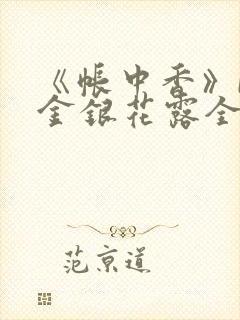 《帐中香》
金银花露全
范京道